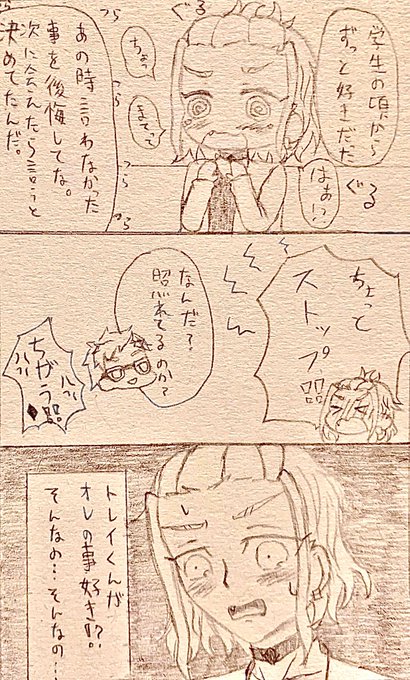 学生の頃から
ずっと好きだった
はぁ!?
ぐる
ぐる
ちょっ
まてって
つら
つら
つら
つら
あの時言わなかった
事を後悔してな。
次に会えたら言うと
決めてたんだ。
ちょっと
ストップ!!
なんだ?
照れてるのか?
ちがう!!
トレイくんが
オレの事好き!?
そんなの…そんなの…